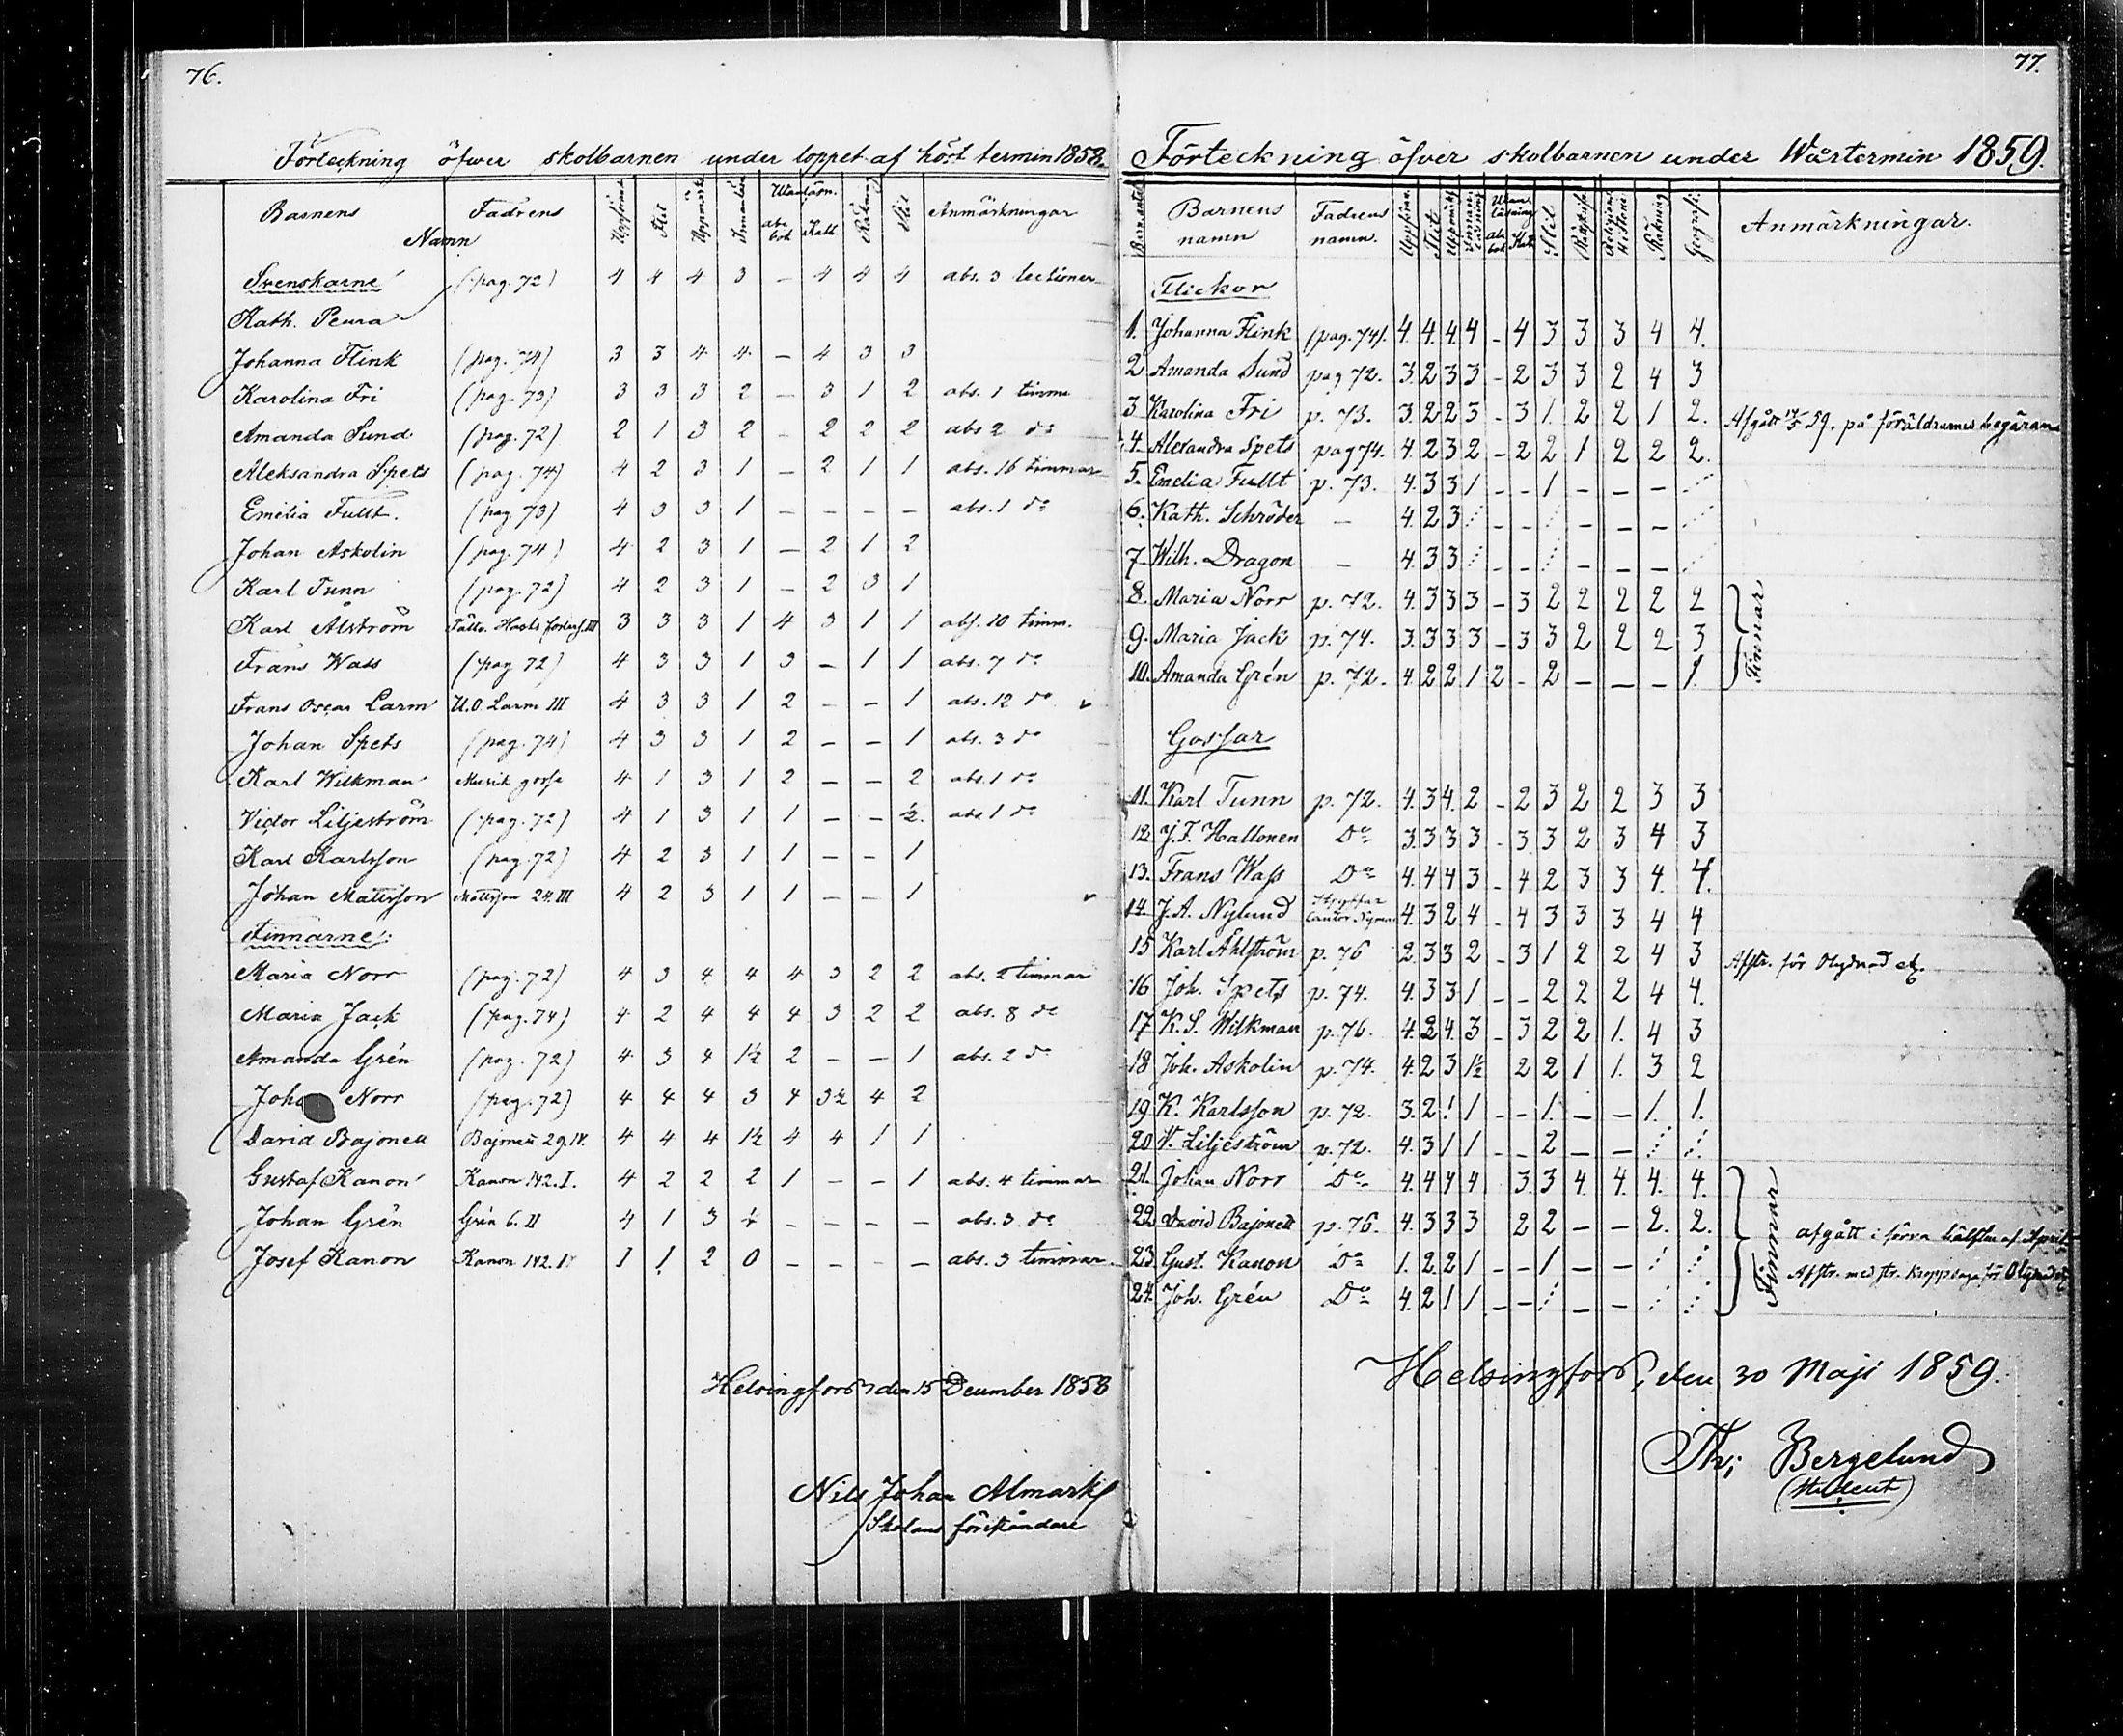 76.
Förteckning öfwer skolbarnen under loppet af höst termin 1858.
Barnens Fadrens Namn Uppförande Flit Uppmärks. Innanläsn. Utanläsn. abc bok Katk. Räkning Stil Anmärkningar
Svenskarne (pag. 72) 4 4 4 3 – 4 4 4 abs. 3 lectioner
Kath. Peura
Johanna Flink (pag. 74) 3 3 4 4 – 4 3 3
Karolina Fri (pag. 73) 3 3 3 2 – 3 1 2 abs. 1 timme
Amanda Sund (pag. 72) 2 1 3 2 – 2 2 2 abs 2 do
Aleksandra Spets (pag. 74) 4 2 3 1 – 2 1 1 abs. 16 timmar
Emelia Fullt. (pag. 73) 4 3 3 1 – – – – abs. 1 do
Johan Askolin (pag. 74) 4 2 3 1 – 2 1 2
Karl Tunn (pag. 72) 4 2 3 1 – 2 3 1
Karl Ålström Fältv. III 3 3 3 1 4 3 1 1 abs. 10 timm.
Frans Wass (pag 72) 4 3 3 1 3 – 1 1 abs. 7 do
Frans Oscar Larm U.O. Larm III 4 3 3 1 2 – – 1 abs. 12 do
Johan Spets (pag. 74) 4 3 3 1 2 – – 1 abs. 3 do
Karl Wilkman Musik gosse 4 1 3 1 2 – – 2 abs. 1 do
Victor Liljeström (pag. 72) 4 1 3 1 1 – – ½. abs 1 do
Karl Karlsson (pag. 72) 4 2 3 1 1 – – 1
Johan Mattsson Mattsson 24. III 4 2 3 1 1 – – 1
Finnarne.
Maria Norr (pag. 72) 4 3 4 4 4 3 2 2 abs. 2 timmar
Maria Jack (pag. 74) 4 2 4 4 4 3 2 2 abs. 8 do
Amanda Grén (pag. 72) 4 3 4 1½ 2 – – 1 abs. 2 do
Joha Norr (pag. 72) 4 4 4 3 4 3½ 4 2
David Bajonett Bajonett 29. IV. 4 4 4 1½ 4 4 1 1
Gustaf Kanon Kanon 142. I. 4 2 2 2 1 – – 1 abs. 4 timmar
Johan Grén Grén 6. II 4 1 3 – – – – abs. 3 do
Josef Kanon Kanon 142. I 1 1 2 0 – – – – abs. 3 timmar
Helsingfors den 15 December 1858
Nils Johan Almark
Skolans föreståndare
77.
Förteckning öfver skolbarnen under Wårtermin 1859.
Barnens namn Fadrens namn. Uppföran. Flit Uppmärks. Innanläsning Utanläsning abc bok Kat. Stil Rättskrifn. Religion Histori Räkning Geografi. Anmärkningar.
Flickor
1. Johanna Flink (pag. 74). 4. 4. 4. 4 – 4 3 3 3 4 4.
2 Amanda Sund pag 72. 3. 2 3 3 – 2 3 3 2 4 3
3 Karolina Fri p. 73. 3. 2 2 3 – 3 1. 2 2 1 2. Afgått 59. på föräldrarnes begäran
4. Alexandra Spets pag 74. 4. 2 3 2 – 2 2 1 2 2 2.
5. Emelia Fullt p. 73. 4. 3 3 1 – – 1 – – –
6. Kath. Schröder – 4. 2 3 – – – – –
7. Wilh. Dragon – 4. 3 3 – – – – –
8. Maria Norr p. 72. 4. 3 3 3 – 3 2 2 2 2 2
9. Maria Jack p. 74. 3. 3 3 3 – 3 3 2 2 2 3
10. Amanda Grén p. 72. 4. 2 2 1 2 – 2 – – – 1.
Finnar
Gossar
11. Karl Tunn p. 72. 4. 3 4. 2 – 2 3 2 2 3 3
12 J. F. Hallonen Do 3. 3 3 3 – 3. 3 2 3 4 3
13. Frans Wass Do 4. 4 4 3 – 4 2 3 3 4. 4.
14. J. A. Nylund Styffar Cantor Nyman 4. 3 2 4 – 4 3 3 3 4 4
15 Karl Åhlström p. 76 2. 3 3 2 – 3 1 2 2 4 3 Afstr. för Olydnad etc.
16 Joh. Spets p. 74. 4. 3 3 1 – – 2 2 2 4 4.
17 K. S. Wilkman p. 76. 4. 2 4. 3 – 3 2 2 1. 4 3
18 Joh. Askolin p. 74. 4. 2 3 1½ 2 2 1 1. 3 2
19 K. Karlsson p. 72. 3. 2 1 1 – – 1. – – 1. 1.
20 V. Liljeström p. 72. 4. 3 1 1 – – 2 – –
21. Johan Norr Do 4. 4 4 4 3. 3 4. 4. 4. 4.
22 David Bajonett p. 76. 4. 3 3 3 2 2 – – 2. 2. afgått i förra hälften af April
23. Gust. Kanon Do 1. 2 2 1 – – 1 – – Afstr. med str. kroppsaga för Olydnad etc
24. Joh. Grén Do 4. 2 1 1 – – – –
Finnar
Helsingfors, den 30 Maji 1859.
Th; Bergelund
(Student)